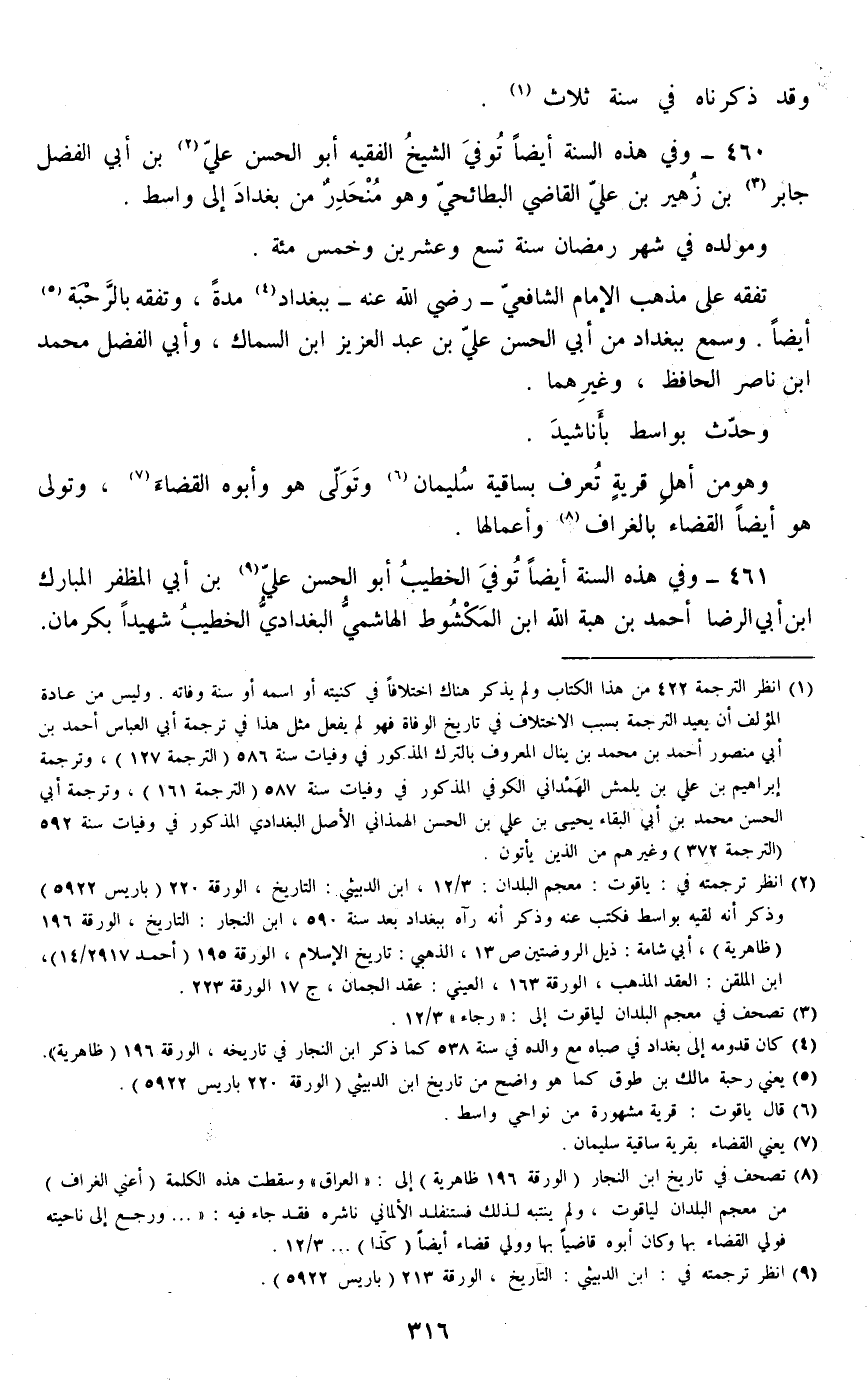 وقد ذكرناه في سنة ثلاث (١) .
٤٦٠ ــ وفي هذه السنة أيضاً تُوفيَ الشيخُ الفقيه أبو الحسن عليّ (٢) بن أبي الفضل
جابر (٣) بن زُهير بن عليّ القاضي البطائحيّ وهو مُنْحَدِرٌ من بغدادَ إلى واسط .
ومولده في شهر رمضان سنة تسع وعشرين وخمس مئة .
تفقه على مذهب الإمام الشافعيّ ــ رضي الله عنه ــ ببغداد (٤) مدةً ، وتفقه بالرَّحْبَة (٥)
أيضاً . وسمع ببغداد من أبي الحسن عليّ بن عبد العزيز ابن السماك ، وأبي الفضل محمد
ابن ناصر الحافظ ، وغيرِهما .
وحدّث بواسط بأَناشيدَ .
وهومن أهلِ قريةٍ تُعرف بساقية سُليمان (٦) وتَوَلّى هو وأبوه القضاءَ (٧) ، وتولى
هو أيضاً القضاء بالغراف (٨) وأعمالها .
٤٦١ ــ وفي هذه السنة أيضاً تُوفيَ الخطيبُ أبو الحسن عليّ (٩) بن أبي المظفر المبارك
ابن أبي الرضا أحمد بن هبة الله ابن المَكْشُوط الهاشميُّ البغداديُّ الخطيبُ شهيداً بكرمان.
(١) انظر الترجمة ٤٢٢ من هذا الكتاب ولم يذكر هناك اختلافاً في كنيته أو اسمه أو سنة وفاته . وليس من عادة
المؤلف أن يعيد الترجمة بسبب الاختلاف في تاريخ الوفاة فهو لم يفعل مثل هذا في ترجمة أبي العباس أحمد بن
أبي منصور أحمد بن محمد بن ينال المعروف بالترك المذكور في وفيات سنة ٥٨٦ ( الترجمة ١٢٧ ) ، وترجمة
إبراهيم بن علي بن يلمش الهَمْداني الكوفي المذكور في وفيات سنة ٥٨٧ ( الترجمة ١٦١ ) ، وترجمة أبي
الحسن محمد بن أبي البقاء يحيى بن علي بن الحسن الهمذاني الأصل البغدادي المذكور في وفيات سنة ٥٩٢
(الترجمة ٣٧٢ ) وغيرهم من الذين يأتون .
(٢) انظر ترجمته في : ياقوت : معجم البلدان : ١٢/٣ ، ابن الدبيثي : التاريخ ، الورقة ٢٢٠ ( باريس ٥٩٢٢ )
وذكر أنه لقيه بواسط فكتب عنه وذكر أنه رآه ببغداد بعد سنة ٥٩٠ ، ابن النجار : التاريخ ، الورقة ١٩٦
( ظاهرية ) ، أبي شامة : ذيل الروضتين ص ١٣ ، الذهبي : تاريخ الإسلام ، الورقة ١٩٥ ( أحمد ١٤/٢٩١٧)،
ابن الملقن : العقد المذهب ، الورقة ١٦٣ ، العيني : عقد الجمان ، ج ١٧ الورقة ٢٢٣ .
(٣) تصحف في معجم البلدان لياقوت إلى : « رجاء » ١٢/٣ .
(٤) كان قدومه إلى بغداد في صباه مع والده في سنة ٥٣٨ كما ذكر ابن النجار في تاريخه ، الورقة ١٩٦ ( ظاهرية).
(٥) يعني رحبة مالك بن طوق كما هو واضح من تاريخ ابن الدبيثي ( الورقة ٢٢٠ باريس ٥٩٢٢ ) .
(٦) قال ياقوت : قرية مشهورة من نواحي واسط .
(٧) يعني القضاء بقرية ساقية سليمان .
(٨) تصحف في تاريخ ابن النجار ( الورقة ١٩٦ ظاهرية ) إلى : « العراق» وسقطت هذه الكلمة ( أعني الغراف )
من معجم البلدان لياقوت ، ولم ينتبه لذلك فستنفلد الألماني ناشره فقد جاء فيه : « ... ورجع إلى ناحيته
فولي القضاء بها وكان أبوه قاضياً بها وولي قضاء أيضاً ( كذا ) ... ١٢/٣ .
(٩) انظر ترجمته في : ابن الدبيثي : التأريخ ، الورقة ٢١٣ ( باريس ٥٩٢٢ ) .
٣١٦